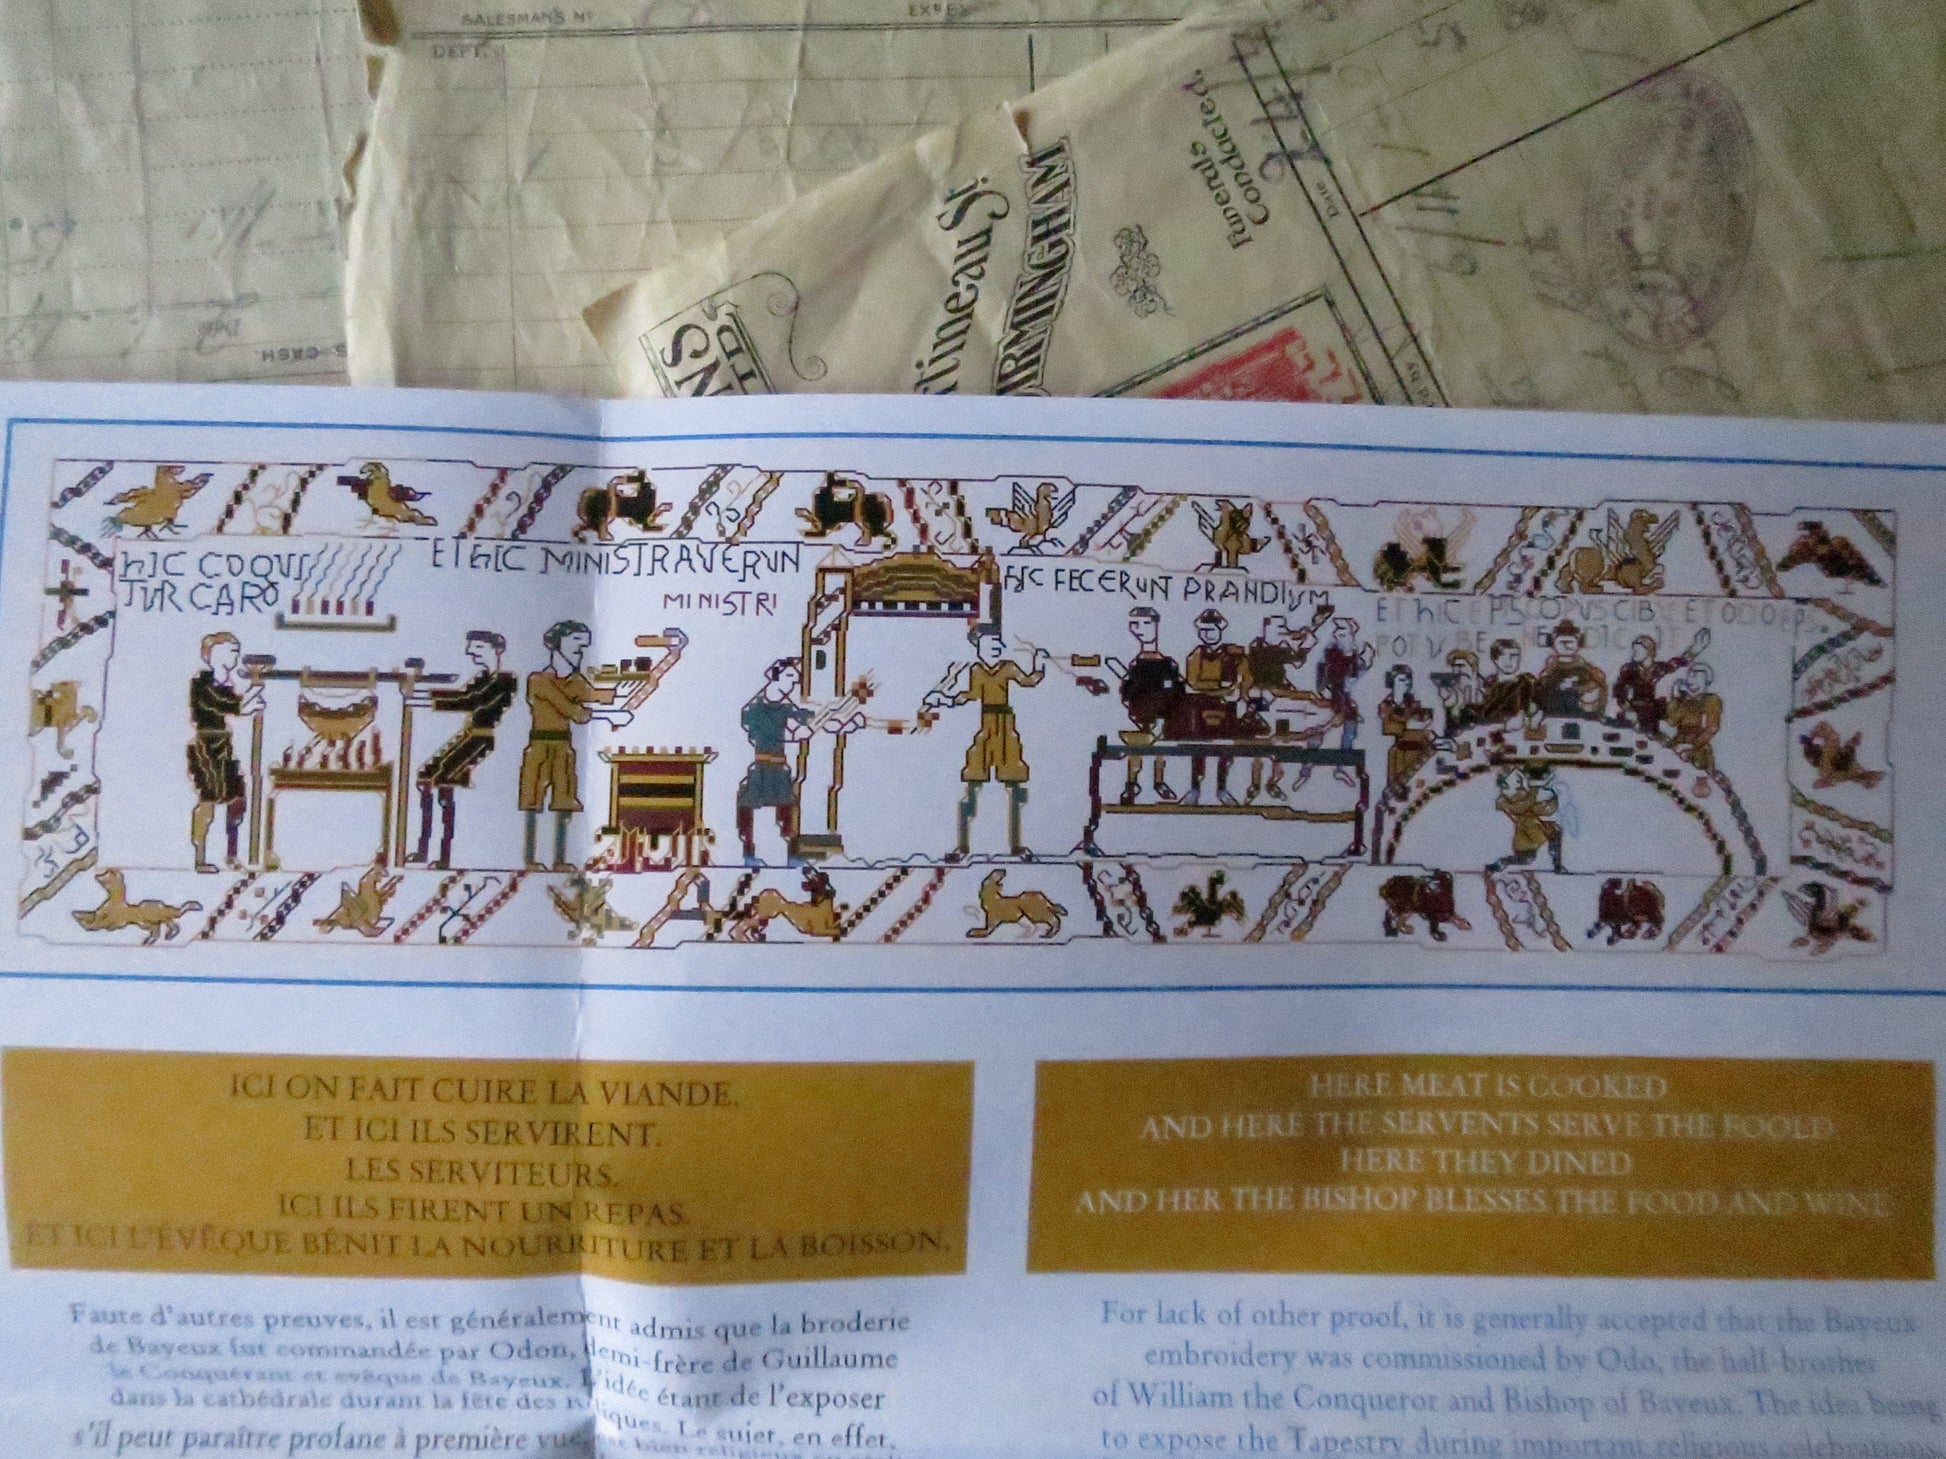 SALESMAN'S Nº
DEPT.
Date
S-CASH.
NS
LTD
rtineau St.
BIRMINGHAM
Funerals
Conducted.
Date
hIC COQUI
TUR CARO
ET hIC MINISTRAVERUN
MINISTRI
hIC FECERUNT PRANDIUM
ET hIC EPSCOPUS CIBU ET ODO EPS
POTU BENEDICIT
ICI ON FAIT CUIRE LA VIANDE.
ET ICI ILS SERVIRENT.
LES SERVITEURS.
ICI ILS FIRENT UN REPAS.
ET ICI L'ÉVÊQUE BÉNIT LA NOURRITURE ET LA BOISSON.
HERE MEAT IS COOKED
AND HERE THE SERVENTS SERVE THE FOOLD
HERE THEY DINED
AND HER THE BISHOP BLESSES THE FOOD AND WINE
Faute d'autres preuves, il est généralement admis que la broderie
de Bayeux fut commandée par Odon, demi-frère de Guillaume
le Conquérant et evêque de Bayeux. L'idée étant de l'exposer
dans la cathédrale durant la fête des Reliques. Le sujet, en effet,
s'il peut paraître profane à première vue, est bien religieux
For lack of other proof, it is generally accepted that the Bayeux
embroidery was commissioned by Odo, the half-brother
of William the Conqueror and Bishop of Bayeux. The idea being
to expose the Tapestry during important religious celebrations